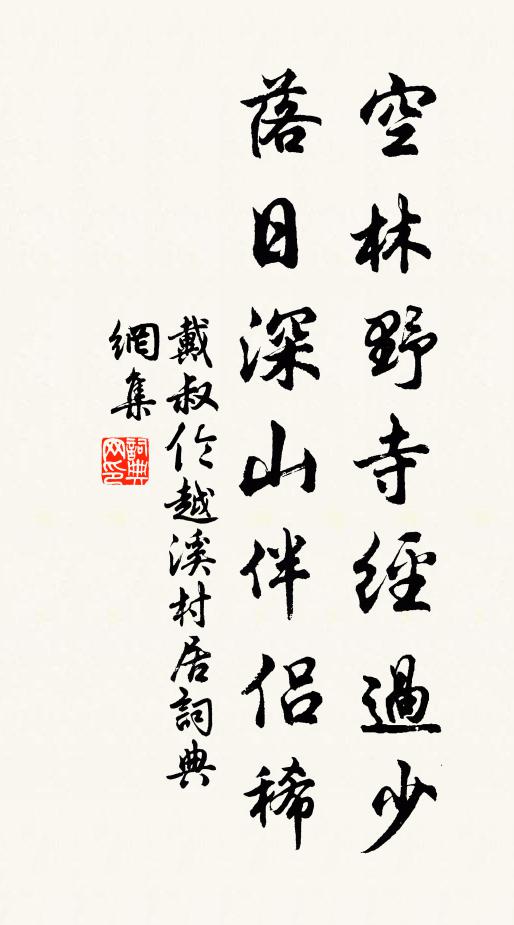 空林野寺經過少
落日深山伴侶稀
戴叔伦越溪村居詞典
網集
詞典
网印